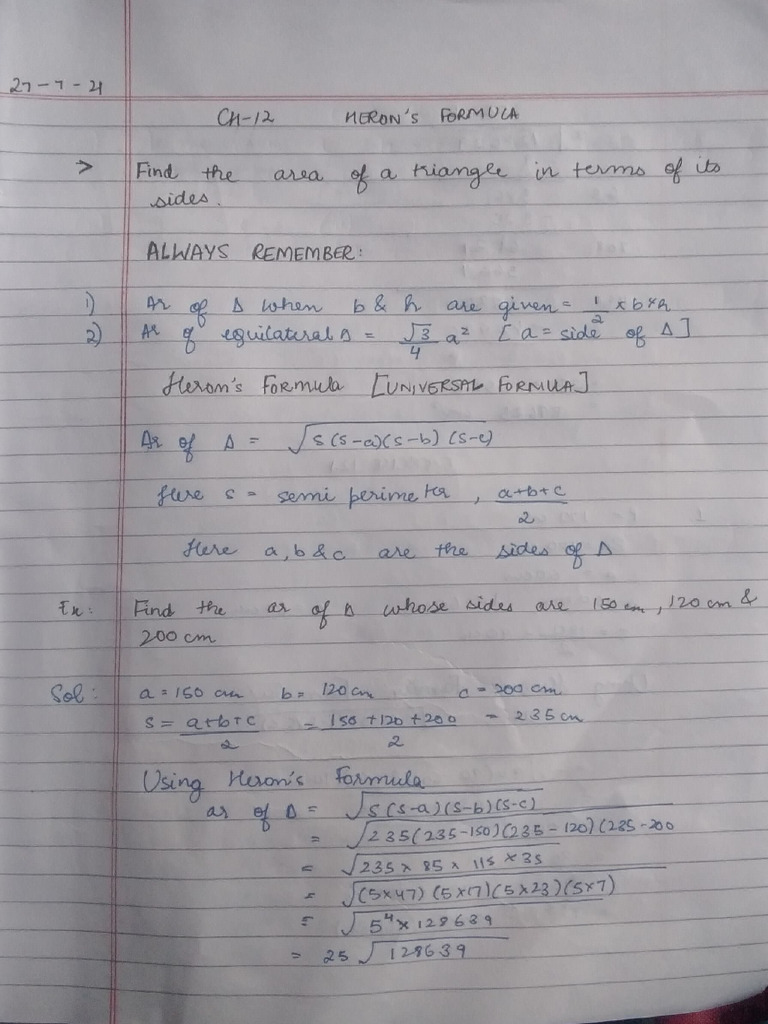 27-7-21
CH-12 HERON'S FORMULA
> Find the area of a triangle in terms of its
sides.
ALWAYS REMEMBER:
1) Ar of Δ when b & h are given = 1/2 x b x h
2) Ar of equilateral Δ = √3/4 a² [a = side of Δ]
Heron's Formula [UNIVERSAL FORMULA]
Ar of Δ = √s(s-a)(s-b)(s-c)
Here s = semi perimeter, a+b+c/2
Here a, b & c are the sides of Δ
Ex: Find the ar of Δ whose sides are 150 cm, 120 cm &
200 cm
Sol: a = 150 cm b = 120 cm c = 200 cm
s = a+b+c/2 = 150+120+200/2 = 235 cm
Using Heron's Formula
ar of Δ = √s(s-a)(s-b)(s-c)
= √235(235-150)(235-120)(235-200
= √235 x 85 x 115 x 35
= √(5x47)(5x17)(5x23)(5x7)
= √5⁴ x 128639
= 25√128639